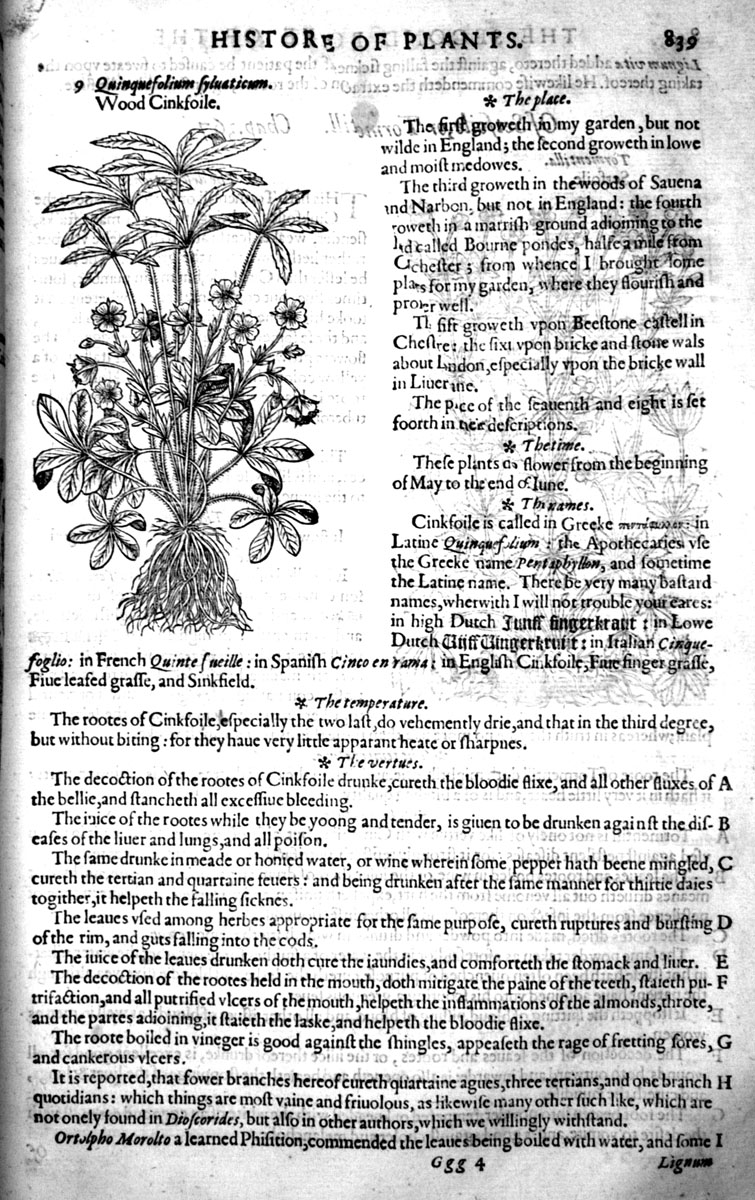 HISTORE OF PLANTS. 839
9 Quinquefolium ſyluaticum.
Wood Cinkfoile.
✻ The place.
The firſt groweth in my garden, but not
wilde in England; the ſecond groweth in lowe
and moiſt medowes.
The third groweth in the woods of Sauena
and Narbon, but not in England: the fourth
roweth in a marriſh ground adioining to the
called Bourne pondes, halfe a mile from
Ccheſter; from whence I brought ſome
plats for my garden, where they flouriſh and
proper well.
The fift groweth vpon Beeſtone caſtell in
Cheſhre: the ſixt vpon bricke and ſtone wals
about London, eſpecially vpon the bricke wall
in
The place of the ſeauenth and eight is ſet
foorth in deſcriptions.
✻ The time.
Theſe plants do flower from the beginning
of May to the end of Iune.
✻ The names.
Cinkfoile is called in Greeke in
Latine Quinquefolium: the Apothecaries vſe
the Greeke name Pentaphyllon, and ſometime
the Latine name. There be very many baſtard
names, wherwith I will not trouble your eares:
in high Dutch Funff fingerkraut: in Lowe
Dutch Uijff Uingerkruijt: in Italian Cinque-
foglio: in French Quinte fueille: in Spaniſh Cinco en rama: in Engliſh Cinkfoile, Fiue finger graſſe,
Fiue leafed graſſe, and Sinkfield.
✻ The temperature.
The rootes of Cinkfoile, eſpecially the two laſt, do vehemently drie, and that in the third degree,
but without biting: for they haue very little apparant heate or ſharpnes.
✻ The vertues.
The decoction of the rootes of Cinkfoile drunke, cureth the bloodie flixe, and all other fluxes of A
the bellie, and ſtancheth all exceſſiue bleeding.
The iuice of the rootes while they be yoong and tender, is giuen to be drunken againſt the diſ- B
eaſes of the liuer and lungs, and all poiſon.
The ſame drunke in meade or honied water, or wine wherein ſome pepper hath beene mingled, C
cureth the tertian and quartaine feuers: and being drunken after the ſame manner for thirtie daies
togither, it helpeth the falling ſicknes.
The leaues vſed among herbes appropriate for the ſame purpoſe, cureth ruptures and burſting D
of the rim, and guts falling into the cods.
The iuice of the leaues drunken doth cure the iaundies, and comforteth the ſtomack and liuer. E
The decoction of the rootes held in the mouth, doth mitigate the paine of the teeth, ſtaieth pu- F
trifaction, and all putrified vlcers of the mouth, helpeth the inflammations of the almonds, throte,
and the partes adioining, it ſtaieth the laske, and helpeth the bloodie flixe.
The roote boiled in vineger is good againſt the ſhingles, appeaſeth the rage of fretting ſores, G
and cankerous vlcers.
It is reported, that fower branches hereof cureth quartaine agues, three tertians, and one branch H
quotidians: which things are moſt vaine and friuolous, as likewiſe many other ſuch like, which are
not onely found in Dioſcorides, but alſo in other authors, which we willingly withſtand.
Ortolpho Morolto a learned Phiſition, commended the leaues being boiled with water, and ſome I
Ggg 4 Lignum